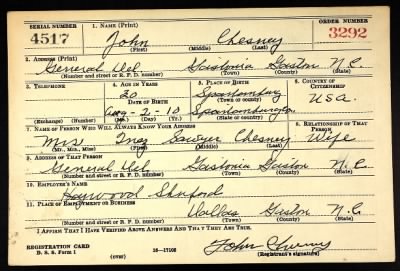 SERIAL NUMBER 1. NAME (Print) ORDER NUMBER
4517 John Chesney 3292
(First) (Middle) (Last)
2. ADDRESS (Print)
General Del Gastonia Gaston N.C.
(Number and street or R. F. D. number) (Town) (County) (State)
3. TELEPHONE 4. AGE IN YEARS 5. PLACE OF BIRTH 6. COUNTRY OF CITIZENSHIP
30 Spartanburg
DATE OF BIRTH (Town or county) USA.
Aug-2-10
(Exchange) (No.) (Mo.) (Day) (Yr.) (State or country)
7. NAME OF PERSON WHO WILL ALWAYS KNOW YOUR ADDRESS 8. RELATIONSHIP OF THAT PERSON
Mrs Inez Sawyer Chesney Wife
(Mr., Mrs., Miss) (First) (Middle) (Last)
9. ADDRESS OF THAT PERSON
General Del Gastonia Gaston N.C.
(Number and street or R. F. D. number) (Town) (County) (State)
10. EMPLOYER'S NAME
Haywood Shuford
11. PLACE OF EMPLOYMENT OR BUSINESS
Dallas Gaston N.C.
(Number and street or R. F. D. number) (Town) (County) (State)
I AFFIRM THAT I HAVE VERIFIED ABOVE ANSWERS AND THAT THEY ARE TRUE.
REGISTRATION CARD
D. S. S. Form 1 (over) 16—17105 John Chesney
(Registrant's signature)